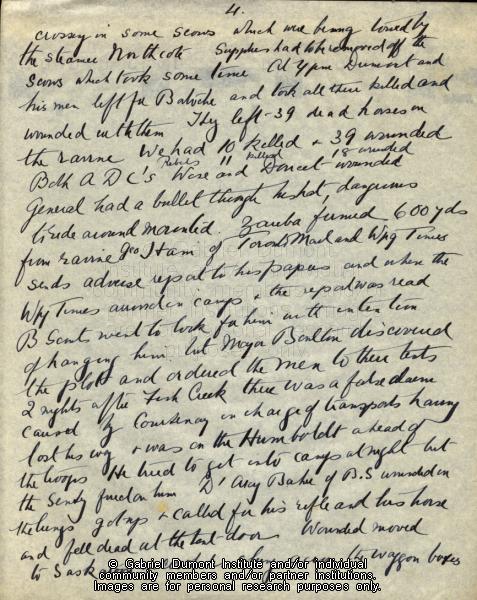 4.
crossing in some scows which were being towed by
the steamer Northcote Supplies had to be removed off the
scows which took some time At 4 pm Dumont and
his men left for Batoche and took all their killed and
wounded with them They left 39 dead horses in
the ravine We had 10 killed & 39 wounded
Rebels 11 killed 18 wounded
Both A D C's Wise and Doucet wounded
General had a bullet through his hat, dangerous
to ride around mounted. Zareba formed 600 yds
from ravine Geo Ham of Toronto Mail and Wpg Times
sends adverse report to his papers and when the
Wpg Times arrived in camp & the report was read
B Scouts went to look for him with intention
of hanging him. but Major Boulton discovered
the plot and ordered the men to their tents
2 nights after Fish Creek there was a false alarm
caused by Courtenay in charge of transports having
lost his way & was on the Humboldt ahead of
the troops He tried to get into camp at night but
the Sentry fired on him D'Arcy Baker of B.S wounded in
the lungs got up & called for his rifle and his horse
and fell dead at the tent door Wounded moved
to Sask waggon boxes
© Gabriel Dumont Institute and/or individual
community members and/or partner institutions.
Images are for personal research purposes only.